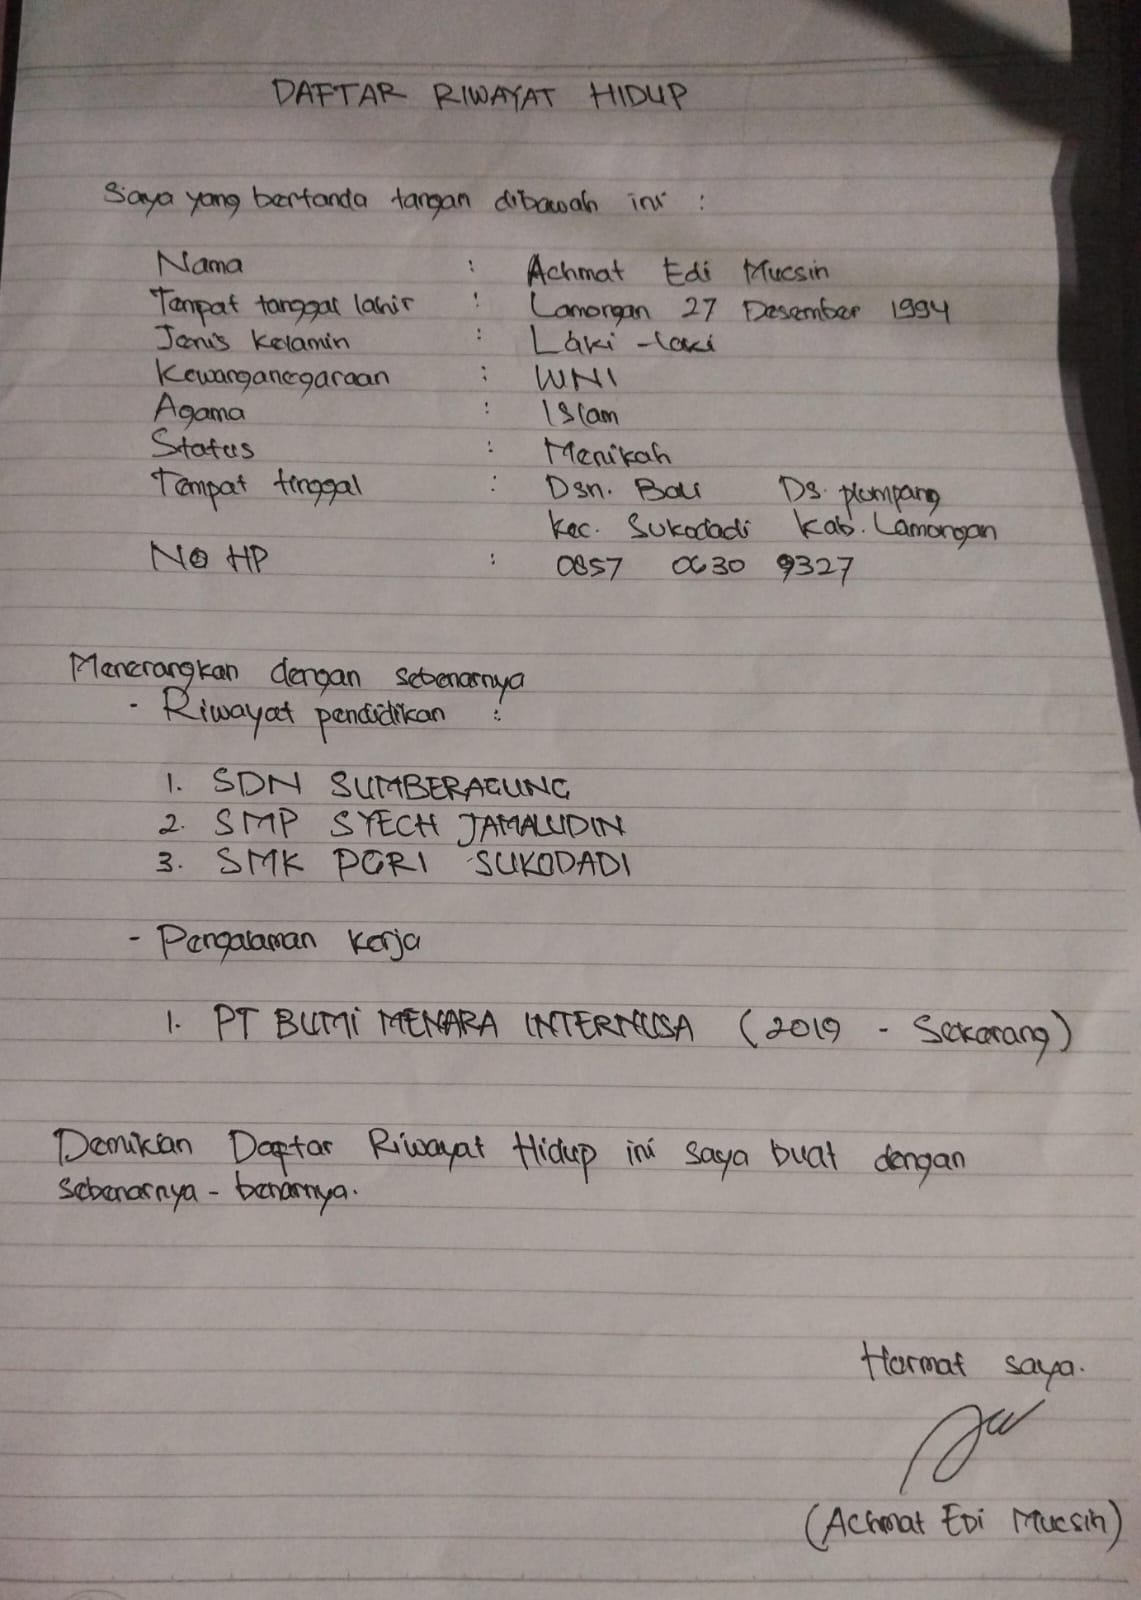 DAFTAR RIWAYAT HIDUP
Saya yang bertanda tangan dibawah ini :
Nama : Achmat Edi Mucsin
Tempat tanggal lahir : Lamongan 27 Desember 1994
Jenis kelamin : Laki - laki
Kewarganegaraan : WNI
Agama : Islam
Status : Menikah
Tempat tinggal : Dsn. Bali Ds. plumpang
kec. Sukodadi kab. Lamongan
No HP : 0857 0630 9327
Menerangkan dengan sebenarnya
- Riwayat pendidikan :
1. SDN SUMBERAGUNG
2. SMP SYECH JAMALUDIN
3. SMK PGRI SUKODADI
- Pengalaman kerja
1. PT BUMI MENARA INTERNUSA (2019 - Sekarang)
Demikian Daftar Riwayat Hidup ini saya buat dengan
sebenarnya - benarnya.
Hormat saya.
(Achmat Edi Mucsin)